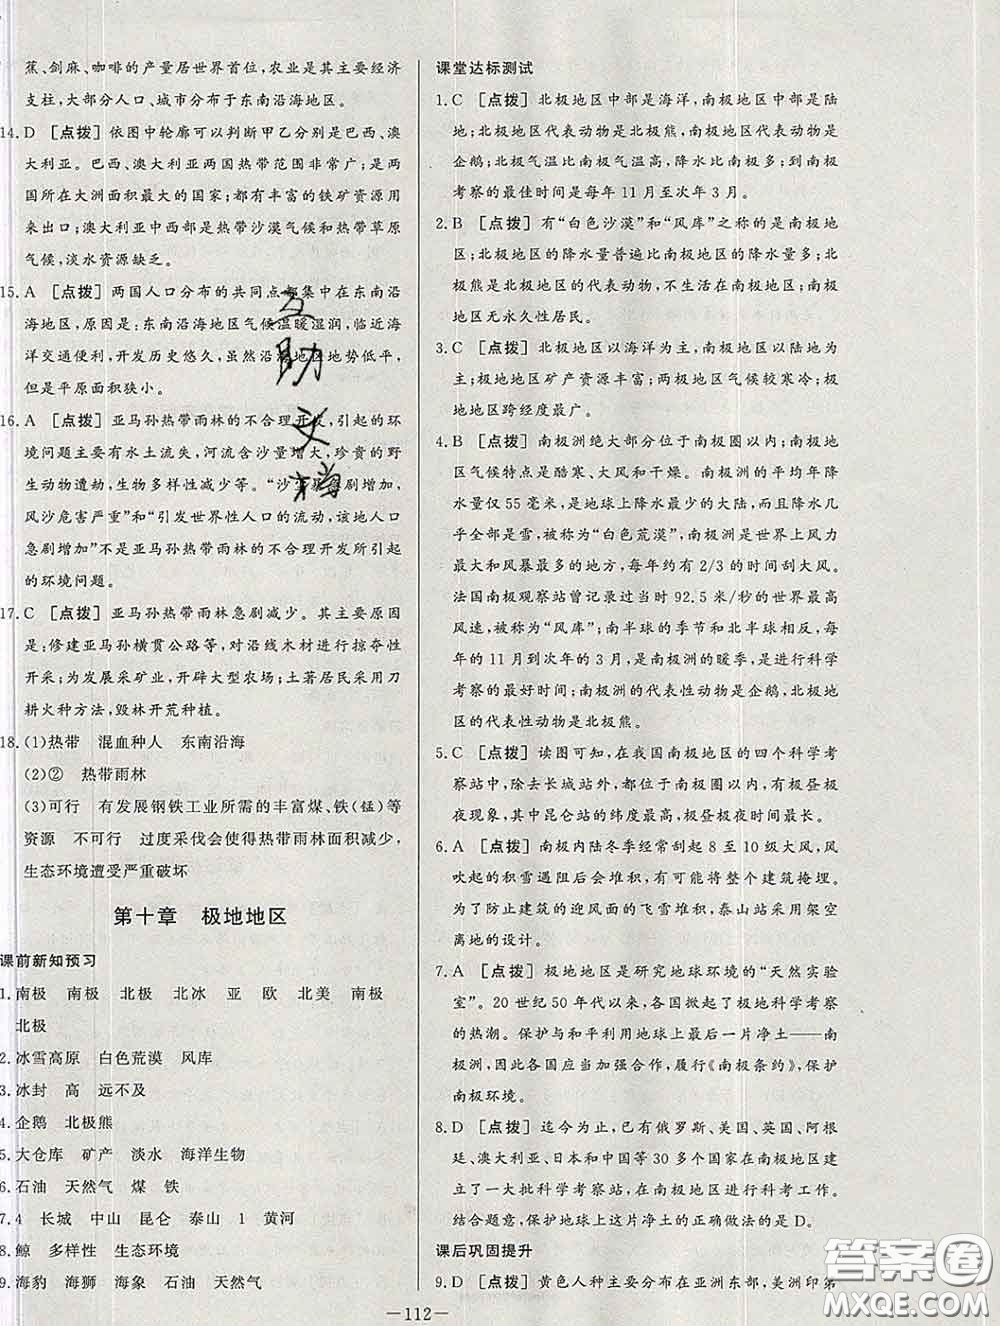 蕉、剑麻、咖啡的产量居世界首位,农业是其主要经济
支柱,大部分人口、城市分布于东南沿海地区。
14. D [点拨] 依图中轮廓可以判断甲乙分别是巴西、澳
大利亚。巴西、澳大利亚两国热带范围非常广;是两
国所在大洲面积最大的国家;都有丰富的铁矿资源用
来出口;澳大利亚中西部是热带沙漠气候和热带草原
气候,淡水资源缺乏。
15. A [点拨] 两国人口分布的共同点都集中在东南沿
海地区,原因是:东南沿海地区气候温暖湿润,临近海
洋交通便利,开发历史悠久,虽然沿海地区地势低平,
但是平原面积狭小。
16. A [点拨] 亚马孙热带雨林的不合理开发,引起的环
境问题主要有水土流失,河流含沙量增大,珍贵的野
生动物遭劫,生物多样性减少等。“沙尘暴急剧增加,
风沙危害严重”和“引发世界性人口的流动,该地人口
急剧增加”不是亚马孙热带雨林的不合理开发所引起
的环境问题。
17. C [点拨] 亚马孙热带雨林急剧减少。其主要原因
是:修建亚马孙横贯公路等,对沿线木材进行掠夺性
开采;为发展采矿业,开辟大型农场;土著居民采用刀
耕火种方法,毁林开荒种植。
18. (1)热带 混血种人 东南沿海
(2)② 热带雨林
(3)可行 有发展钢铁工业所需的丰富煤、铁(锰)等
资源 不可行 过度采伐会使得热带雨林面积减少,
生态环境遭受严重破坏
第十章 极地地区
课前新知预习
1. 南极 南极 北极 北冰 亚 欧 北美 南极
北极
2. 冰雪高原 白色荒漠 风库
3. 冰封 高 远不及
4. 企鹅 北极熊
5. 大仓库 矿产 淡水 海洋生物
6. 石油 天然气 煤 铁
7. 4 长城 中山 昆仑 泰山 1 黄河
8. 鲸 多样性 生态环境
9. 海豹 海狮 海象 石油 天然气
课堂达标测试
1. C [点拨] 北极地区中部是海洋,南极地区中部是陆
地;北极地区代表动物是北极熊,南极地区代表动物是
企鹅;北极气温比南极气温高,降水比南极多;到南极
考察的最佳时间是每年 11 月至次年 3 月。
2. B [点拨] 有“白色沙漠”和“风库”之称的是南极地
区;北极地区的降水量普遍比南极地区的降水量多;北
极熊是北极地区的代表动物,不生活在南极地区;南极
地区无永久性居民。
3. C [点拨] 北极地区以海洋为主,南极地区以陆地为
主;极地地区矿产资源丰富;两极地区气候较寒冷;极
地地区跨经度最广。
4. B [点拨] 南极洲绝大部分位于南极圈以内;南极地
区气候特点是酷寒、大风和干燥。南极洲的平均年降
水量仅 55 毫米,是地球上降水最少的大陆,而且降水几
乎全部是雪,被称为“白色荒漠”;南极洲是世界上风力
最大和风暴最多的地方,每年约有 2/3 的时间刮大风。
法国南极观察站曾记录过当时 92.5 米/秒的世界最高
风速,被称为“风库”;南半球的季节和北半球相反,每
年的 11 月到次年的 3 月,是南极洲的暖季,是进行科学
考察的最好时间;南极洲的代表性动物是企鹅,北极地
区的代表性动物是北极熊。
5. C [点拨] 读图可知,在我国南极地区的四个科学考
察站中,除去长城站外,都位于南极圈以内,有极昼极
夜现象,其中昆仑站的纬度最高,极昼极夜时间最长。
6. A [点拨] 南极内陆冬季经常刮起 8 至 10 级大风,风
吹起的积雪遇阻后会堆积,有可能将整个建筑掩埋。
为了防止建筑的迎风面的飞雪堆积,泰山站采用架空
离地的设计。
7. A [点拨] 极地地区是研究地球环境的“天然实验
室”。20 世纪 50 年代以来,各国掀起了极地科学考察
的热潮。保护与和平利用地球上最后一片净土——南
极洲,因此,各国应当加强合作,履行《南极条约》,保护
南极环境。
8. D [点拨] 迄今为止,已有俄罗斯、美国、英国、阿根
廷、澳大利亚、日本和中国等30 多个国家在南极地区
建立了一大批科学考察站,在南极地区进行科考工作。
结合题意,保护地球上这片净土的正确做法的是 D。
课后巩固提升
9. D [点拨] 黄色人种主要分布在亚洲东部、美洲印第
—112—
互助文档
答案圈
MXQE.COM